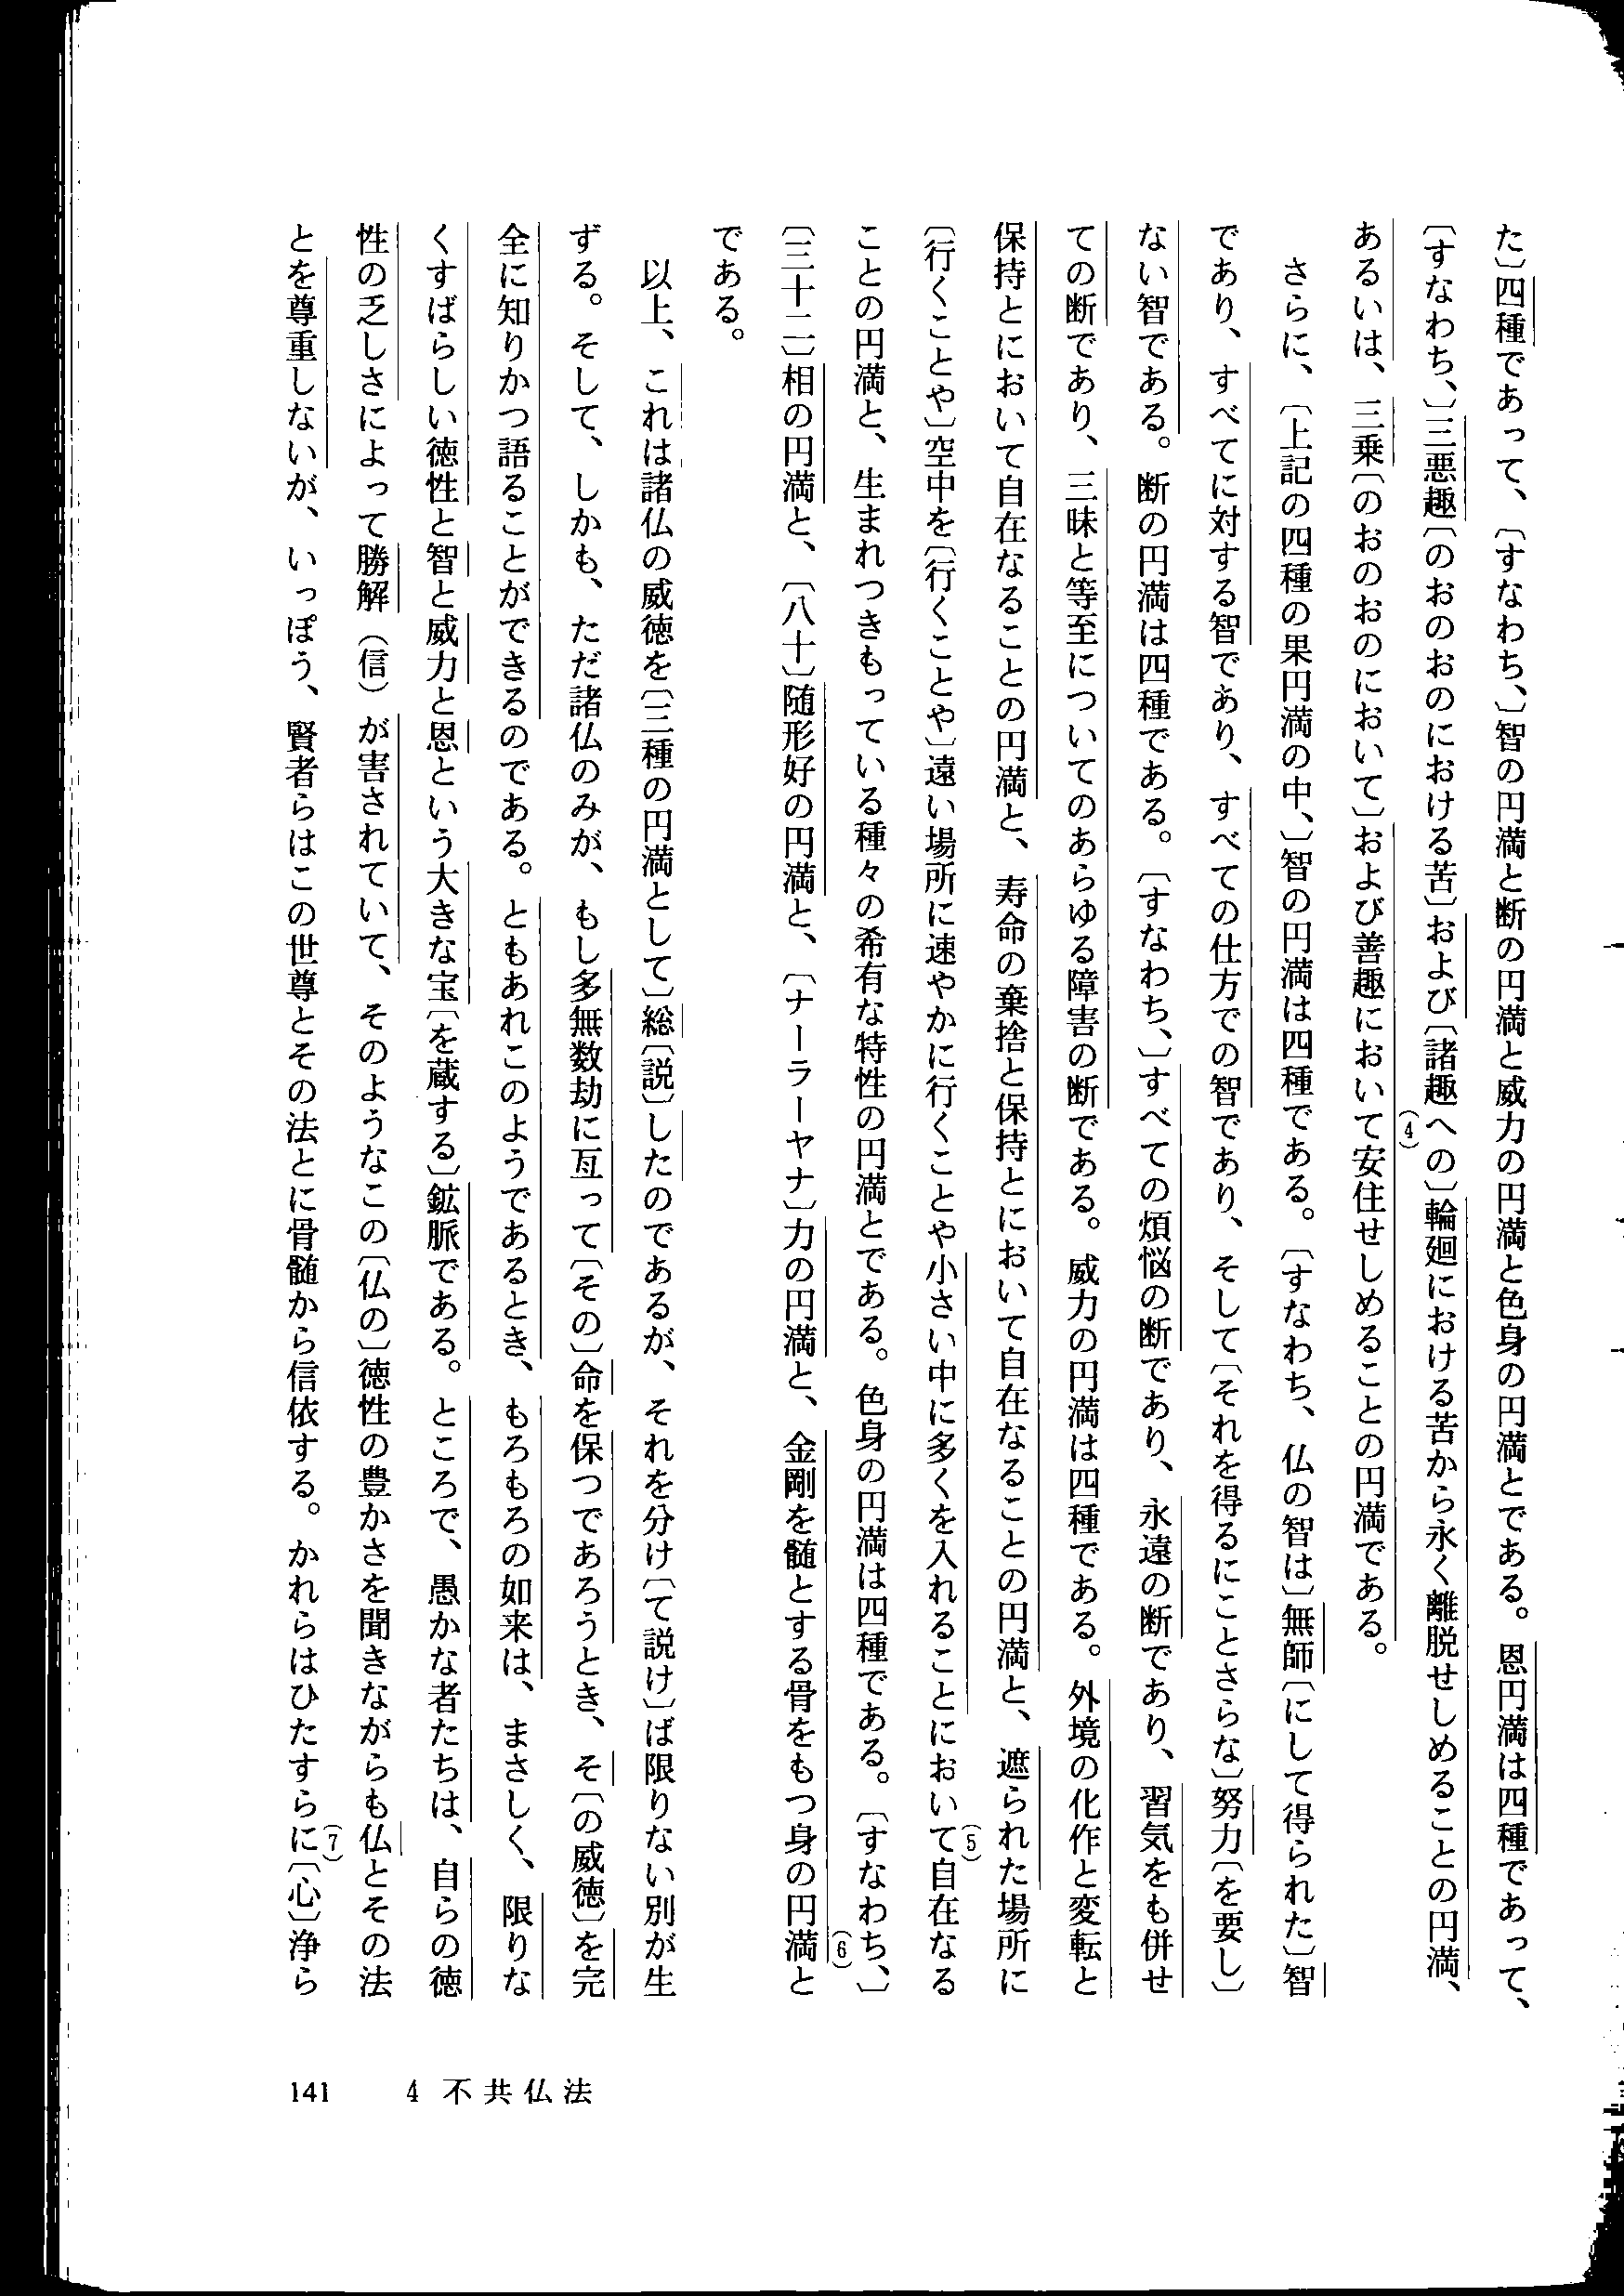 た〕四種であって、〔すなわち、〕智の円満と断の円満と威力の円満と色身の円満とである。恩円満は四種であって、
〔すなわち、〕三悪趣〔のおのおのにおける苦〕および〔諸趣への〕輪廻における苦から永く離脱せしめることの円満、
あるいは、三乗〔のおのおのにおいて〕および善趣において安住せしめることの円満である。(4)
さらに、〔上記の四種の果円満の中、〕智の円満は四種である。〔すなわち、仏の智は〕無師〔にして得られた〕智
であり、すべてに対する智であり、すべての仕方での智であり、そして〔それを得るにことさらな〕努力〔を要し〕
ない智である。断の円満は四種である。〔すなわち、〕すべての煩悩の断であり、永遠の断であり、習気をも併せ
ての断であり、三昧と等至についてのあらゆる障害の断である。威力の円満は四種である。外境の化作と変転と
保持とにおいて自在なることの円満と、寿命の棄捨と保持とにおいて自在なることの円満と、遮られた場所に
〔行くことや〕空中を〔行くことや〕遠い場所に速やかに行くことや小さい中に多くを入れることにおいて自在なる(5)
ことの円満と、生まれつきもっている種々の希有な特性の円満とである。色身の円満は四種である。〔すなわち、〕
〔三十二〕相の円満と、〔八十〕随形好の円満と、〔ナーラーヤナ〕力の円満と、金剛を髄とする骨をもつ身の円満と(6)
である。
以上、これは諸仏の威徳を〔三種の円満として〕総〔説〕したのであるが、それを分け〔て説け〕ば限りない別が生
ずる。そして、しかも、ただ諸仏のみが、もし多無数劫に亙って〔その〕命を保つであろうとき、そ〔の威徳〕を完
全に知りかつ語ることができるのである。ともあれこのようであるとき、もろもろの如来は、まさしく、限りな
くすばらしい徳性と智と威力と恩という大きな宝〔を蔵する〕鉱脈である。ところで、愚かな者たちは、自らの徳
性の乏しさによって勝解（信）が害されていて、そのようなこの〔仏の〕徳性の豊かさを聞きながらも仏とその法
とを尊重しないが、いっぽう、賢者らはこの世尊とその法とに骨髄から信依する。かれらはひたすらに〔心〕浄ら(7)
141 4 不共仏法